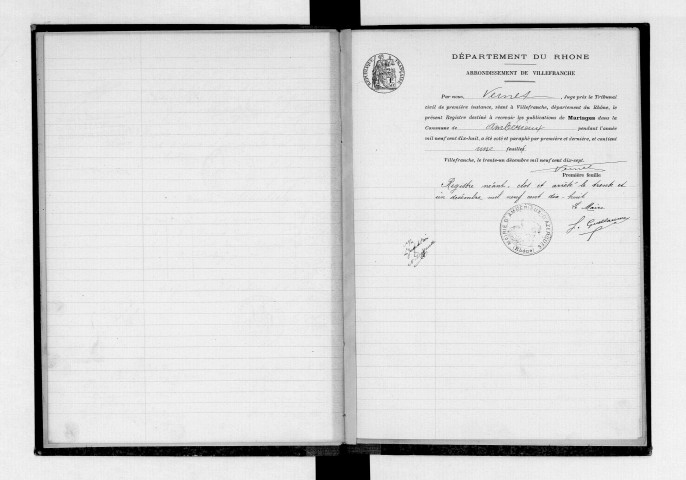 DÉPARTEMENT DU RHONE
ARRONDISSEMENT DE VILLEFRANCHE
Par nous, Vernet, Juge près le Tribunal
civil de première instance, séant à Villefranche, département du Rhône, le
présent Registre destiné à recevoir les publications de Mariages dans la
Commune de Ambérieux pendant l'année
mil neuf cent dix-huit, a été coté et paraphé par première et dernière, et contient
une feuilles
Villefranche, le trente-un décembre mil neuf cent dix-sept.
Vernet
Première feuille
Registre néant, clos et arrêté le trente et
un décembre mil neuf cent dix-huit
Le Maire
MAIRIE D'AMBÉRIEUX D'AZERGUES
(Rhône)